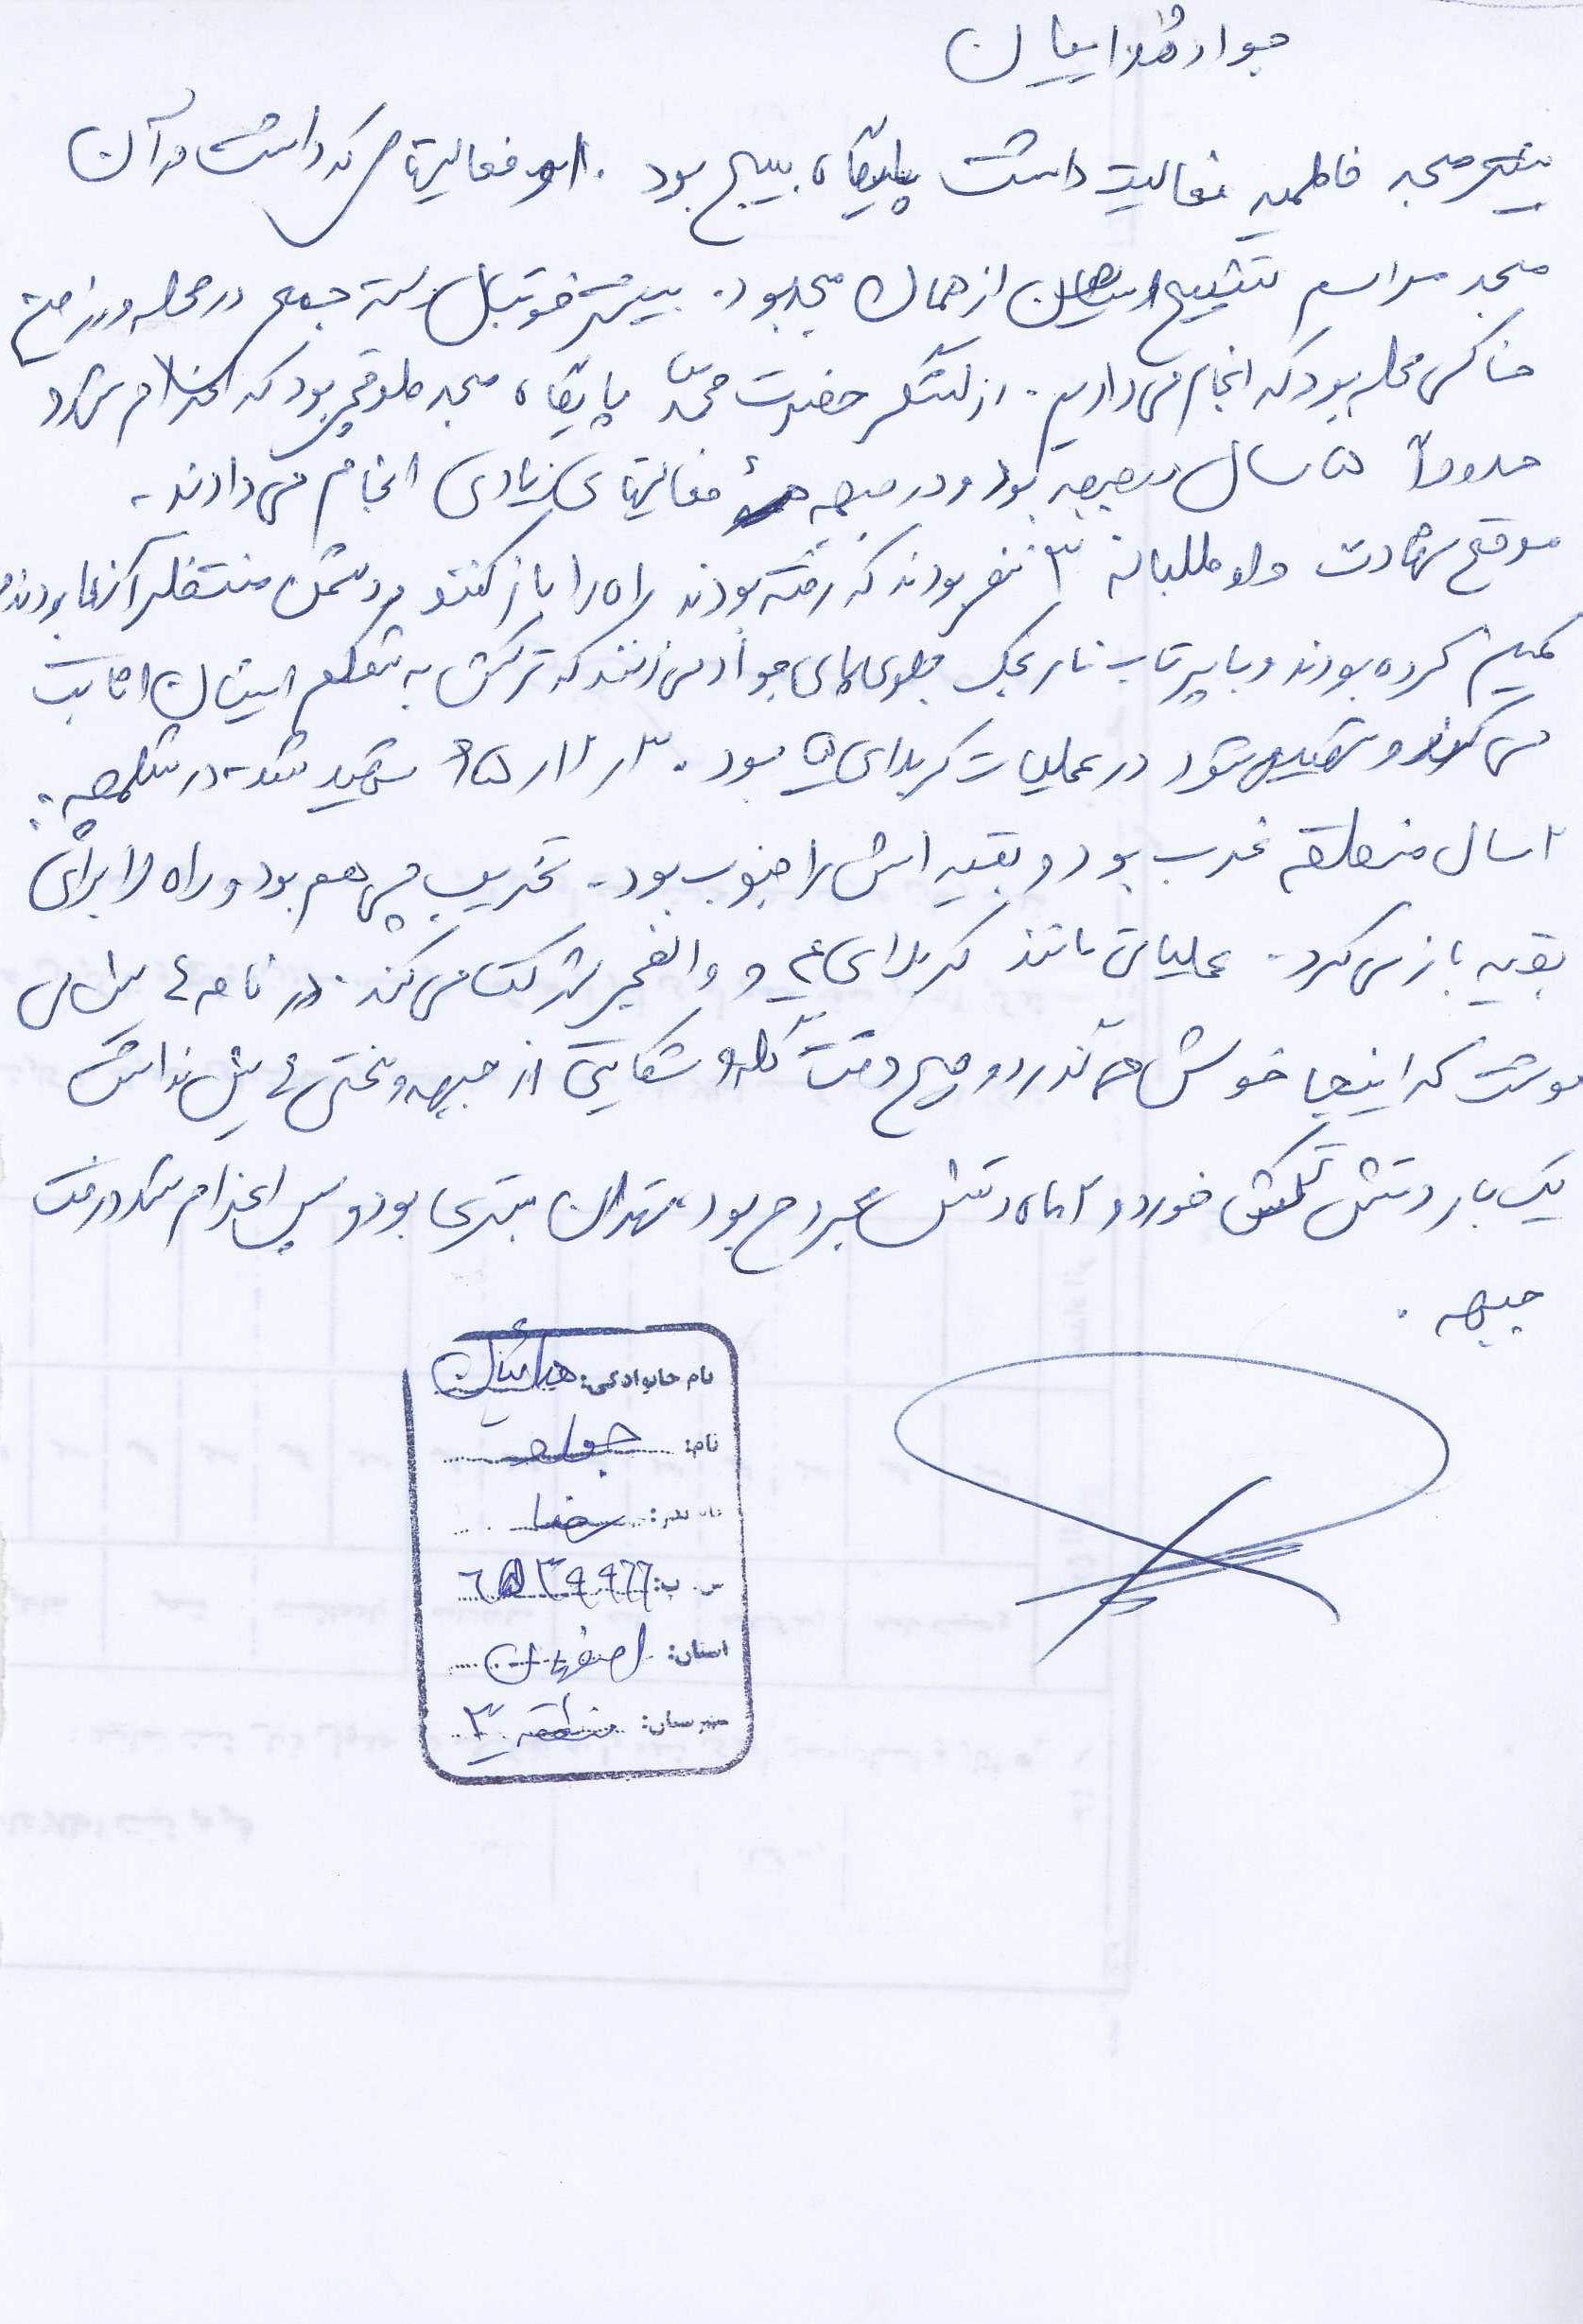 جواد هدائیان
بیشتر مسجد فاطمیه فعالیت داشت پایگاه بسیج بود. فعالیتهایی که داشت در آن
مسجد مراسم تشییع ایشان از همان مسجد بود. بیشتر فوتبال دسته جمعی در محله و در زمین
خاکی محله بود که انجام می دادیم. از لشگر حضرت محمد پایگاه مسجد بود که اعزام می شد
حدوداً ۵ سال جبهه بود و در جبهه فعالیتهای زیادی انجام می دادند.
موقع شهادت داوطلبانه ۳ نفر بودند که رفته بودند راه را باز کنند و دشمن منتظر آنها بودند
کمین کرده بودند و با پرتاب نارنجک جلوی پای جواد می زنند که ترکش به شکم ایشان اصابت
می کند و شهید می شود در عملیات کربلای ۵ بود. ۶۵ شهید شد در شلمچه.
۲ سال منطقه غرب بود و بقیه اش را جنوب بود. تخریب چی هم بود و راه را برای
بقیه باز می کرد. عملیاتی مانند کربلای ۴ و والفجر شرکت می کند. در نامه هایش می
نوشت که اینجا خوش می گذرد و هیچ وقت گله و شکایتی از جبهه و سختی هایش نداشت
یک بار دستش ترکش خورد و ۲ ماه دستش مجروح بود، تهران بستری بود و پس اعزام شد و رفت
جبهه.
نام خانوادگی: هدائیان
نام: جواد
نام پدر: رضا
س. پ: ۶۵۳۹۹۶۶
استان: اصفهان
شهرستان: منطقه ۳